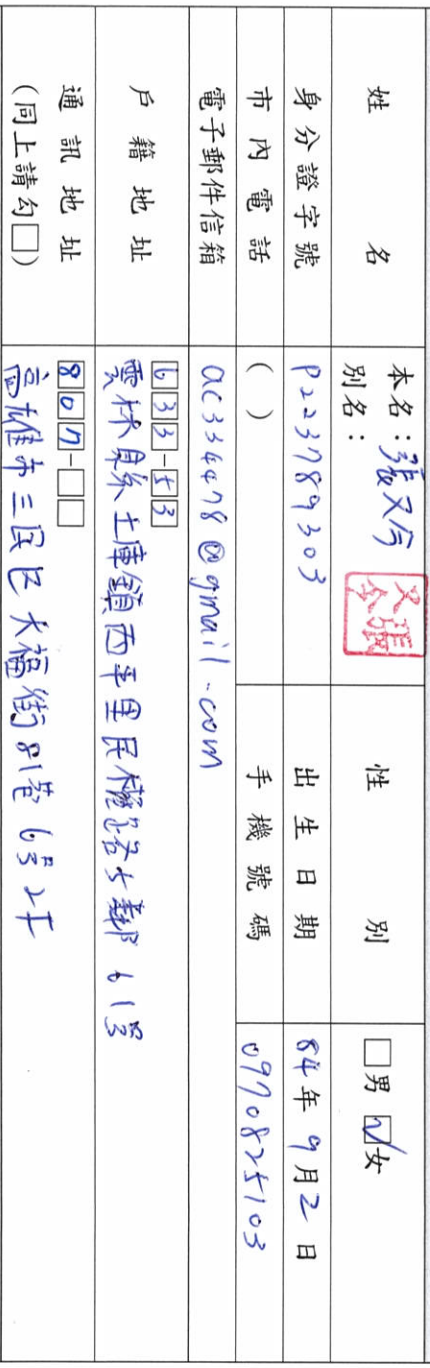 姓名 本名：張又今 張又今 性別 □男 ☑女
別名：
身分證字號 P223789303 出生日期 84年9月2日
市內電話 ( ) 手機號碼 0970825103
電子郵件信箱 ac334478@gmail.com
戶籍地址 633-53
雲林縣土庫鎮西平里民權路5鄰61號
通訊地址 807-□□
(同上請勾□) 高雄市三民區大福街81巷6號2F